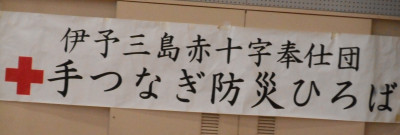 伊予三島赤十字奉仕団
手つなぎ防災ひろば